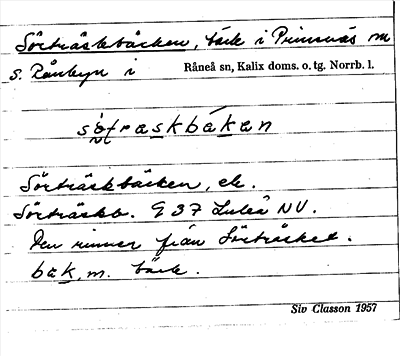 Sörträskbäcken, bäck i Prinsnäs m
S. Rånbyn i Råneå sn, Kalix doms. o. tg. Norrb. l.
Sörträskbäcken, ek.
Sörträskb. G 37 Luleå NV.
Den rinner från Sörträsket.
bäk, m. bäck.
Siv Classon 1957